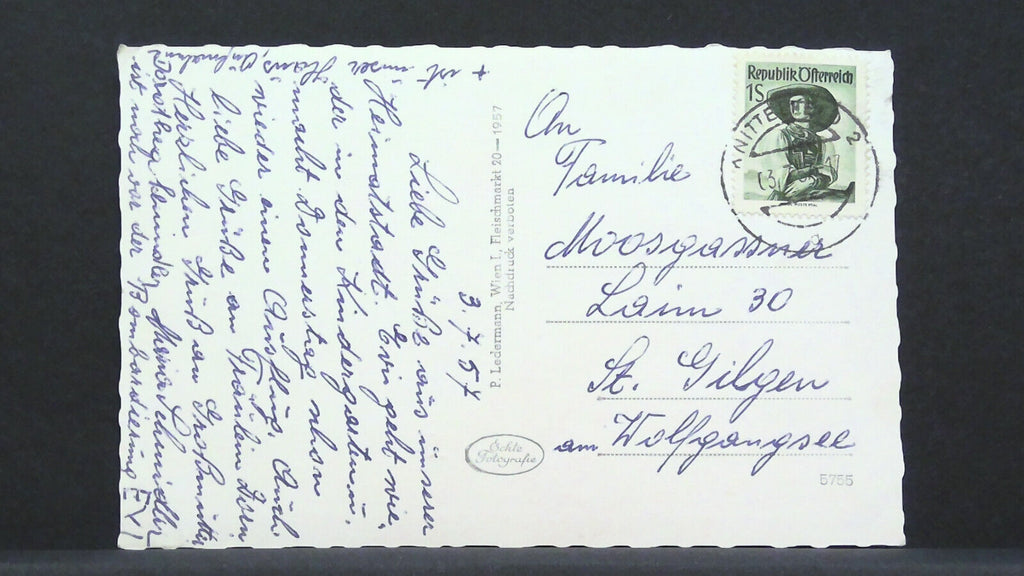 3.7.57
Liebe Grüße aus unserer
Heimatstadt. Evi geht wie-
der in den Kindergarten,
macht Donnerstag schon
wieder einen Ausflug. Auch
liebe Grüße an Fräulein
Herzlichen Gruß an Großmutter
Dorothea
ist noch vor der Bombardierung EVI
+ ist unser Haus
P. Ledermann, Wien I., Fleischmarkt 20—1957
Nachdruck verboten
Echte
Fotografie
Republik Österreich
1S
An
Familie
Moosgassner
Laim 30
St. Gilgen
am Wolfgangsee
5755